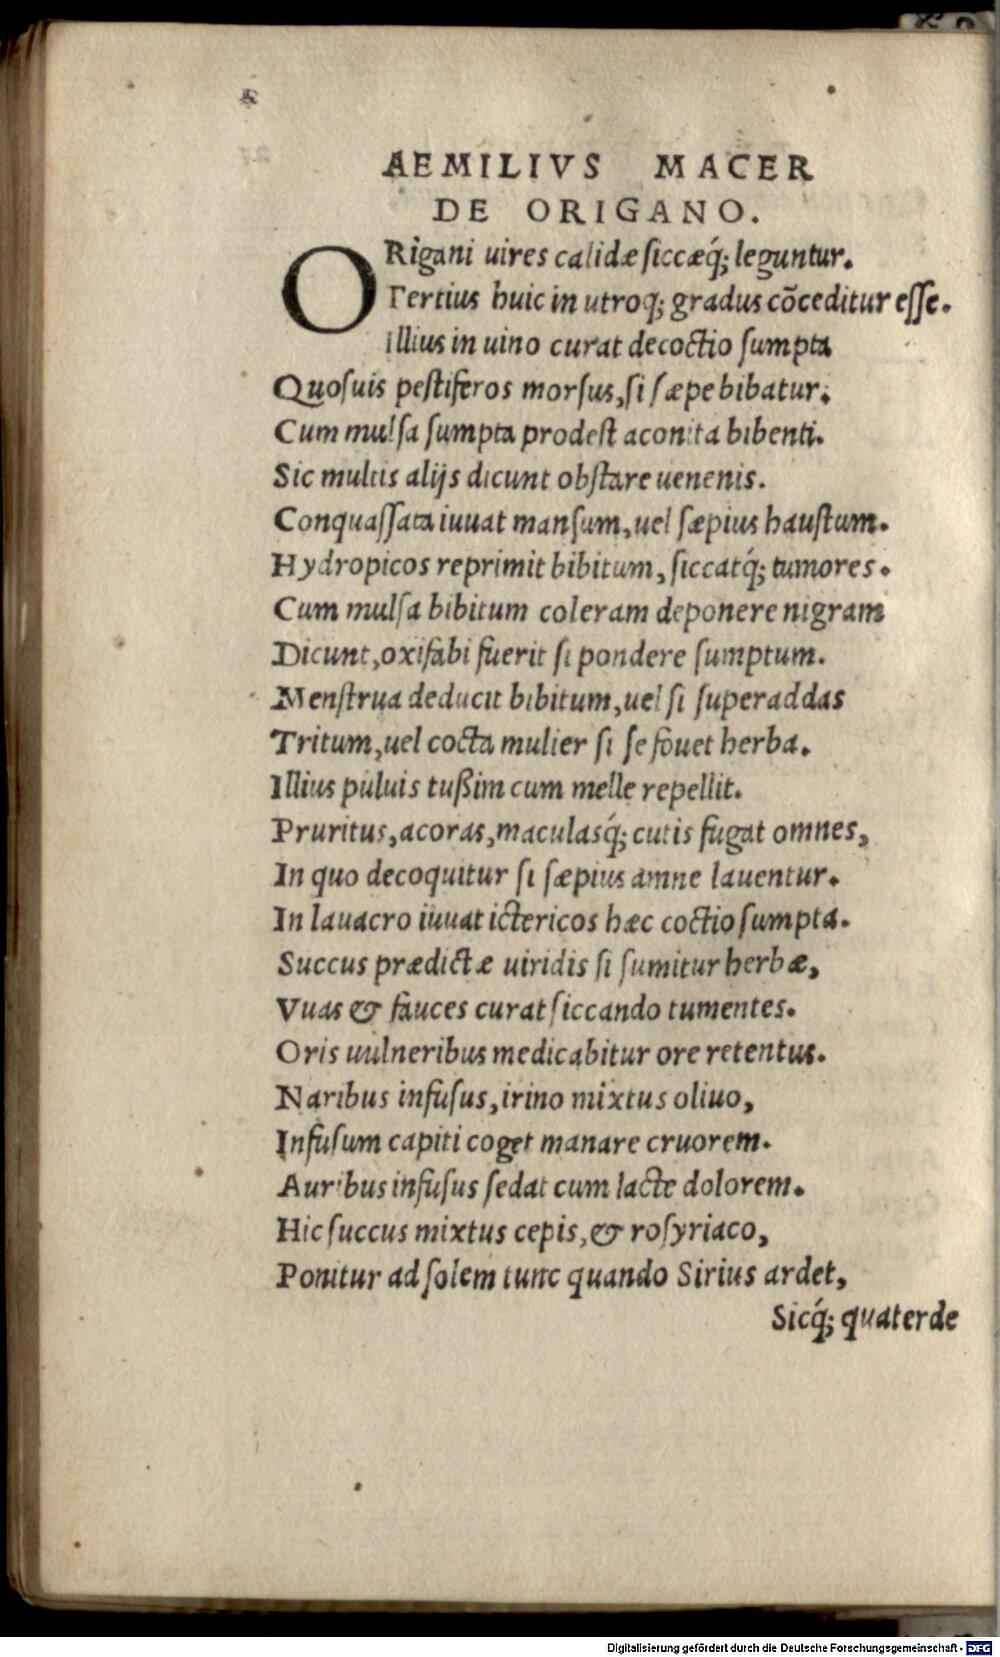 AEMILIVS MACER
DE ORIGANO.
ORigani uires calidæ siccæq́; leguntur.
Tertius huic in utroq; gradus cõceditur esse.
illius in uino curat decoctio sumpta
Quosuis pestiferos morsus, si sæpe bibatur.
Cum mulsa sumpta prodest aconita bibenti.
Sic multis alijs dicunt obstare uenenis.
Conquassata iuuat mansum, uel sæpius haustum.
Hydropicos reprimit bibitum, siccatq́; tumores.
Cum mulsa bibitum coleram deponere nigram
Dicunt, oxifabi fuerit si pondere sumptum.
Menstrua deducit bibitum, uel si superaddas
Tritum, uel cocta mulier si se fouet herba.
Illius puluis tußim cum melle repellit.
Pruritus, acoras, maculasq́; cutis fugat omnes,
In quo decoquitur si sæpius amne lauentur.
In lauacro iuuat ictericos hæc coctio sumpta.
Succus prædictæ uiridis si sumitur herbæ,
Vuas & fauces curat siccando tumentes.
Oris uulneribus medicabitur ore retentus.
Naribus infusus, irino mixtus oliuo,
Infusum capiti coget manare cruorem.
Auribus infusus sedat cum lacte dolorem.
Hic succus mixtus cepis, & rosyriaco,
Ponitur ad solem tunc quando Sirius ardet,
Sicq́; quaterde
Digitalisierung gefördert durch die Deutsche Forschungsgemeinschaft - DFG